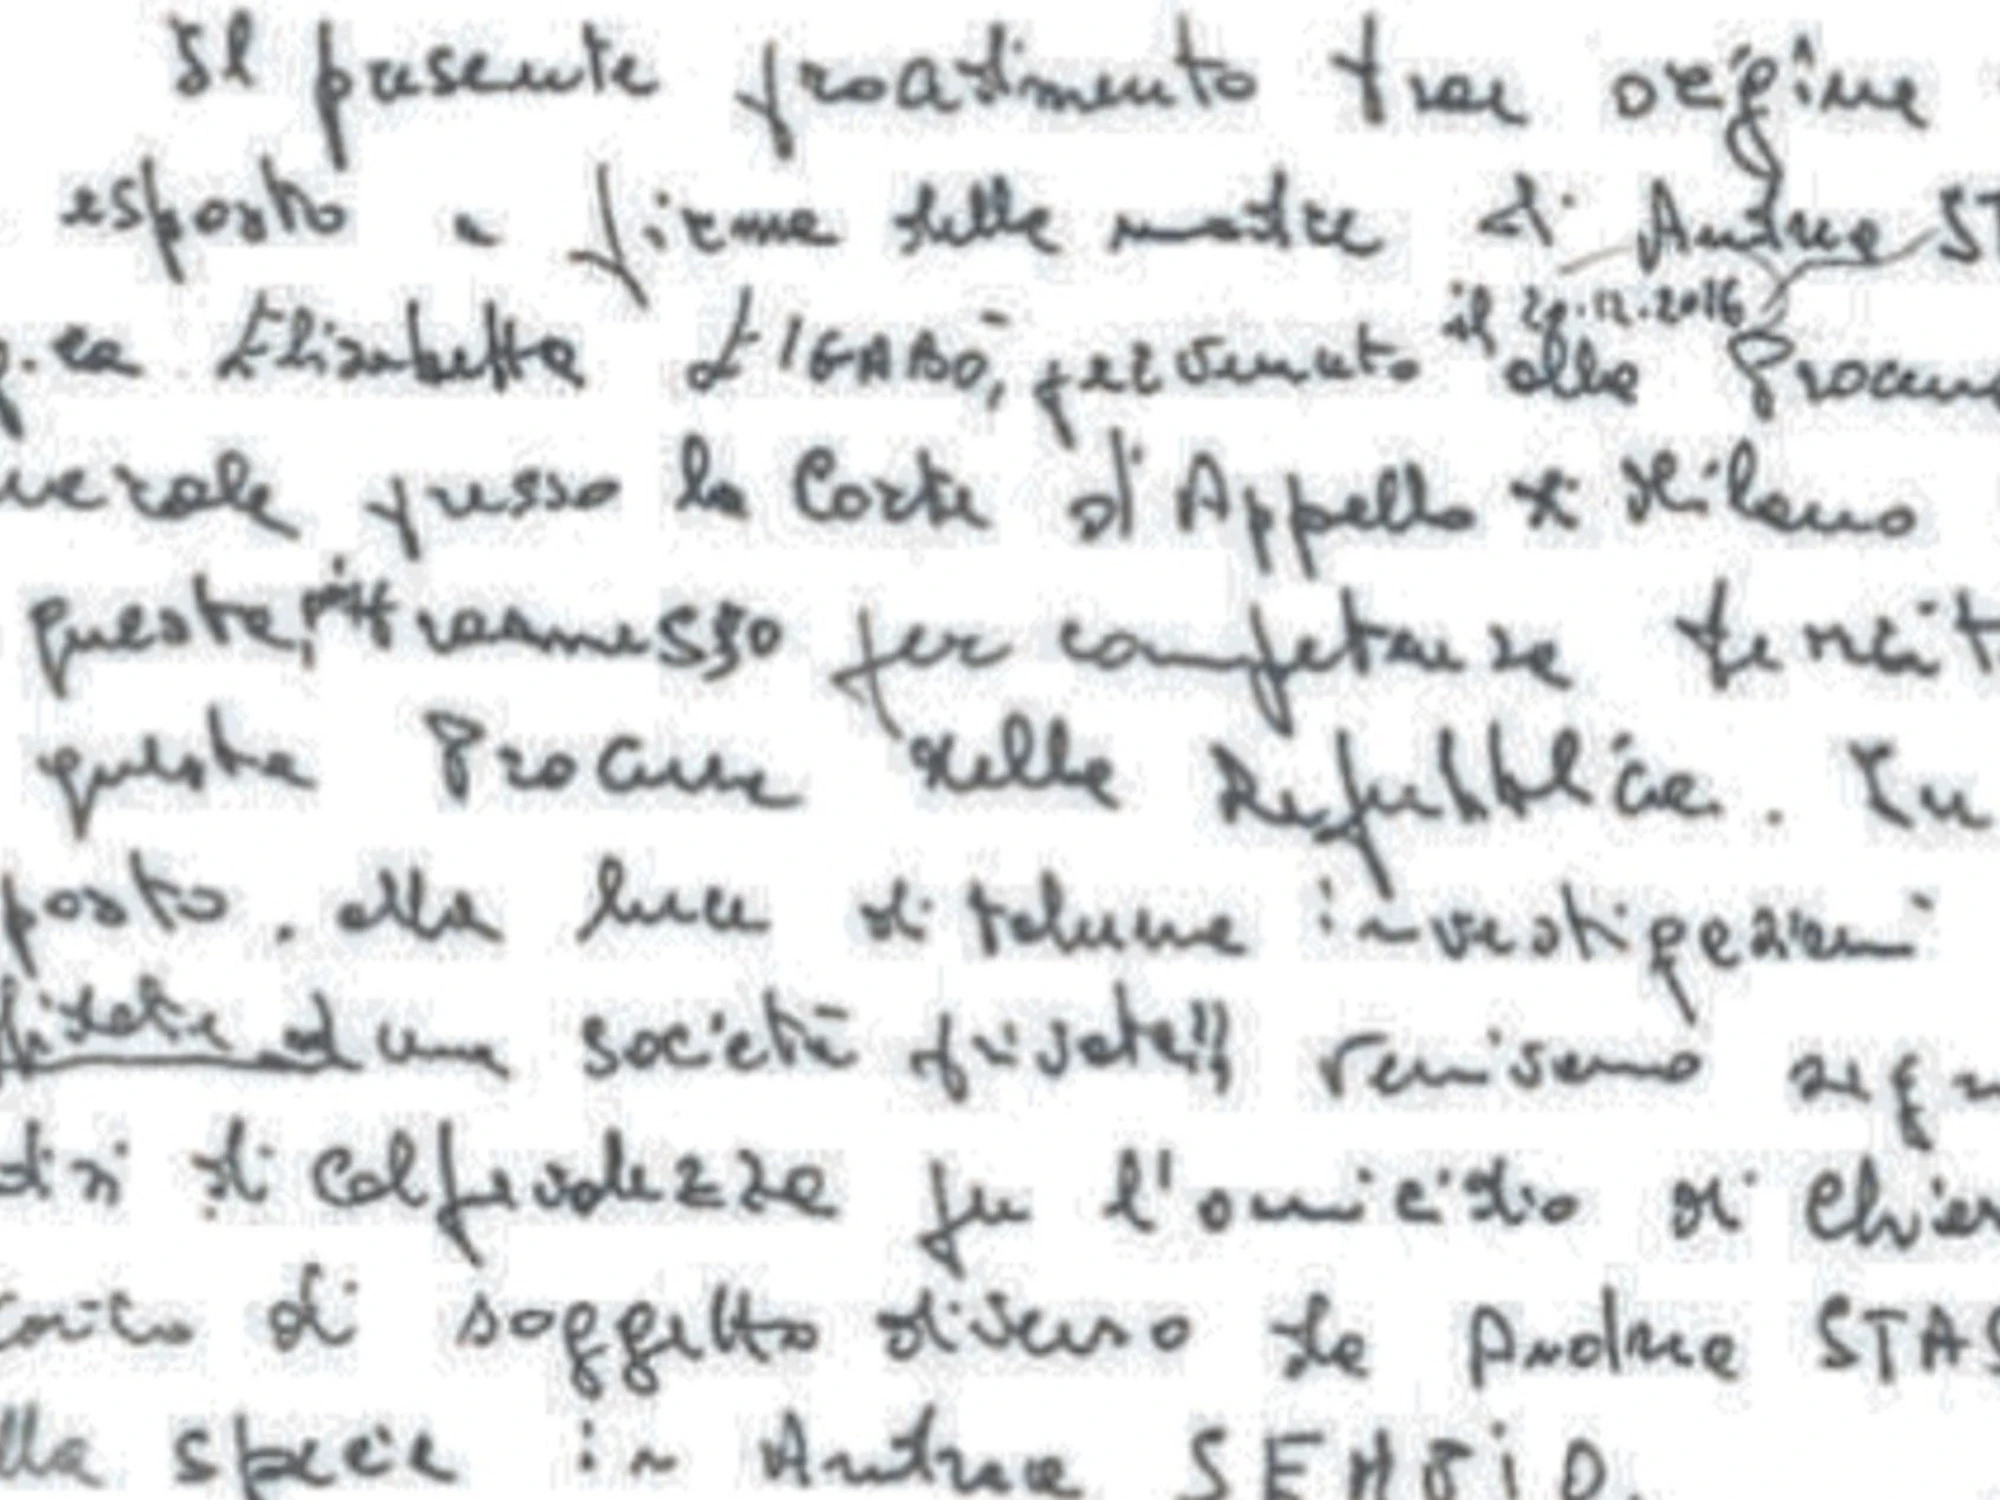 Il presente procedimento trae origine
esposto a firma della madre di Andrea ST
g.ra Elisabetta LIGABÒ, pervenuto il 29.12.2016 alla Procur
nerale presso la Corte d'Appello di Milano
questa, poi trasmesso per competenza territ
questa Procura della Repubblica. In
posto, alla luce di talune investigazioni
fidate ad una società privata, venivano
di colpevolezza per l'omicidio di Chiar
carico di soggetto diverso da Andrea STAS
lla specie in Andrea SEMPIO.